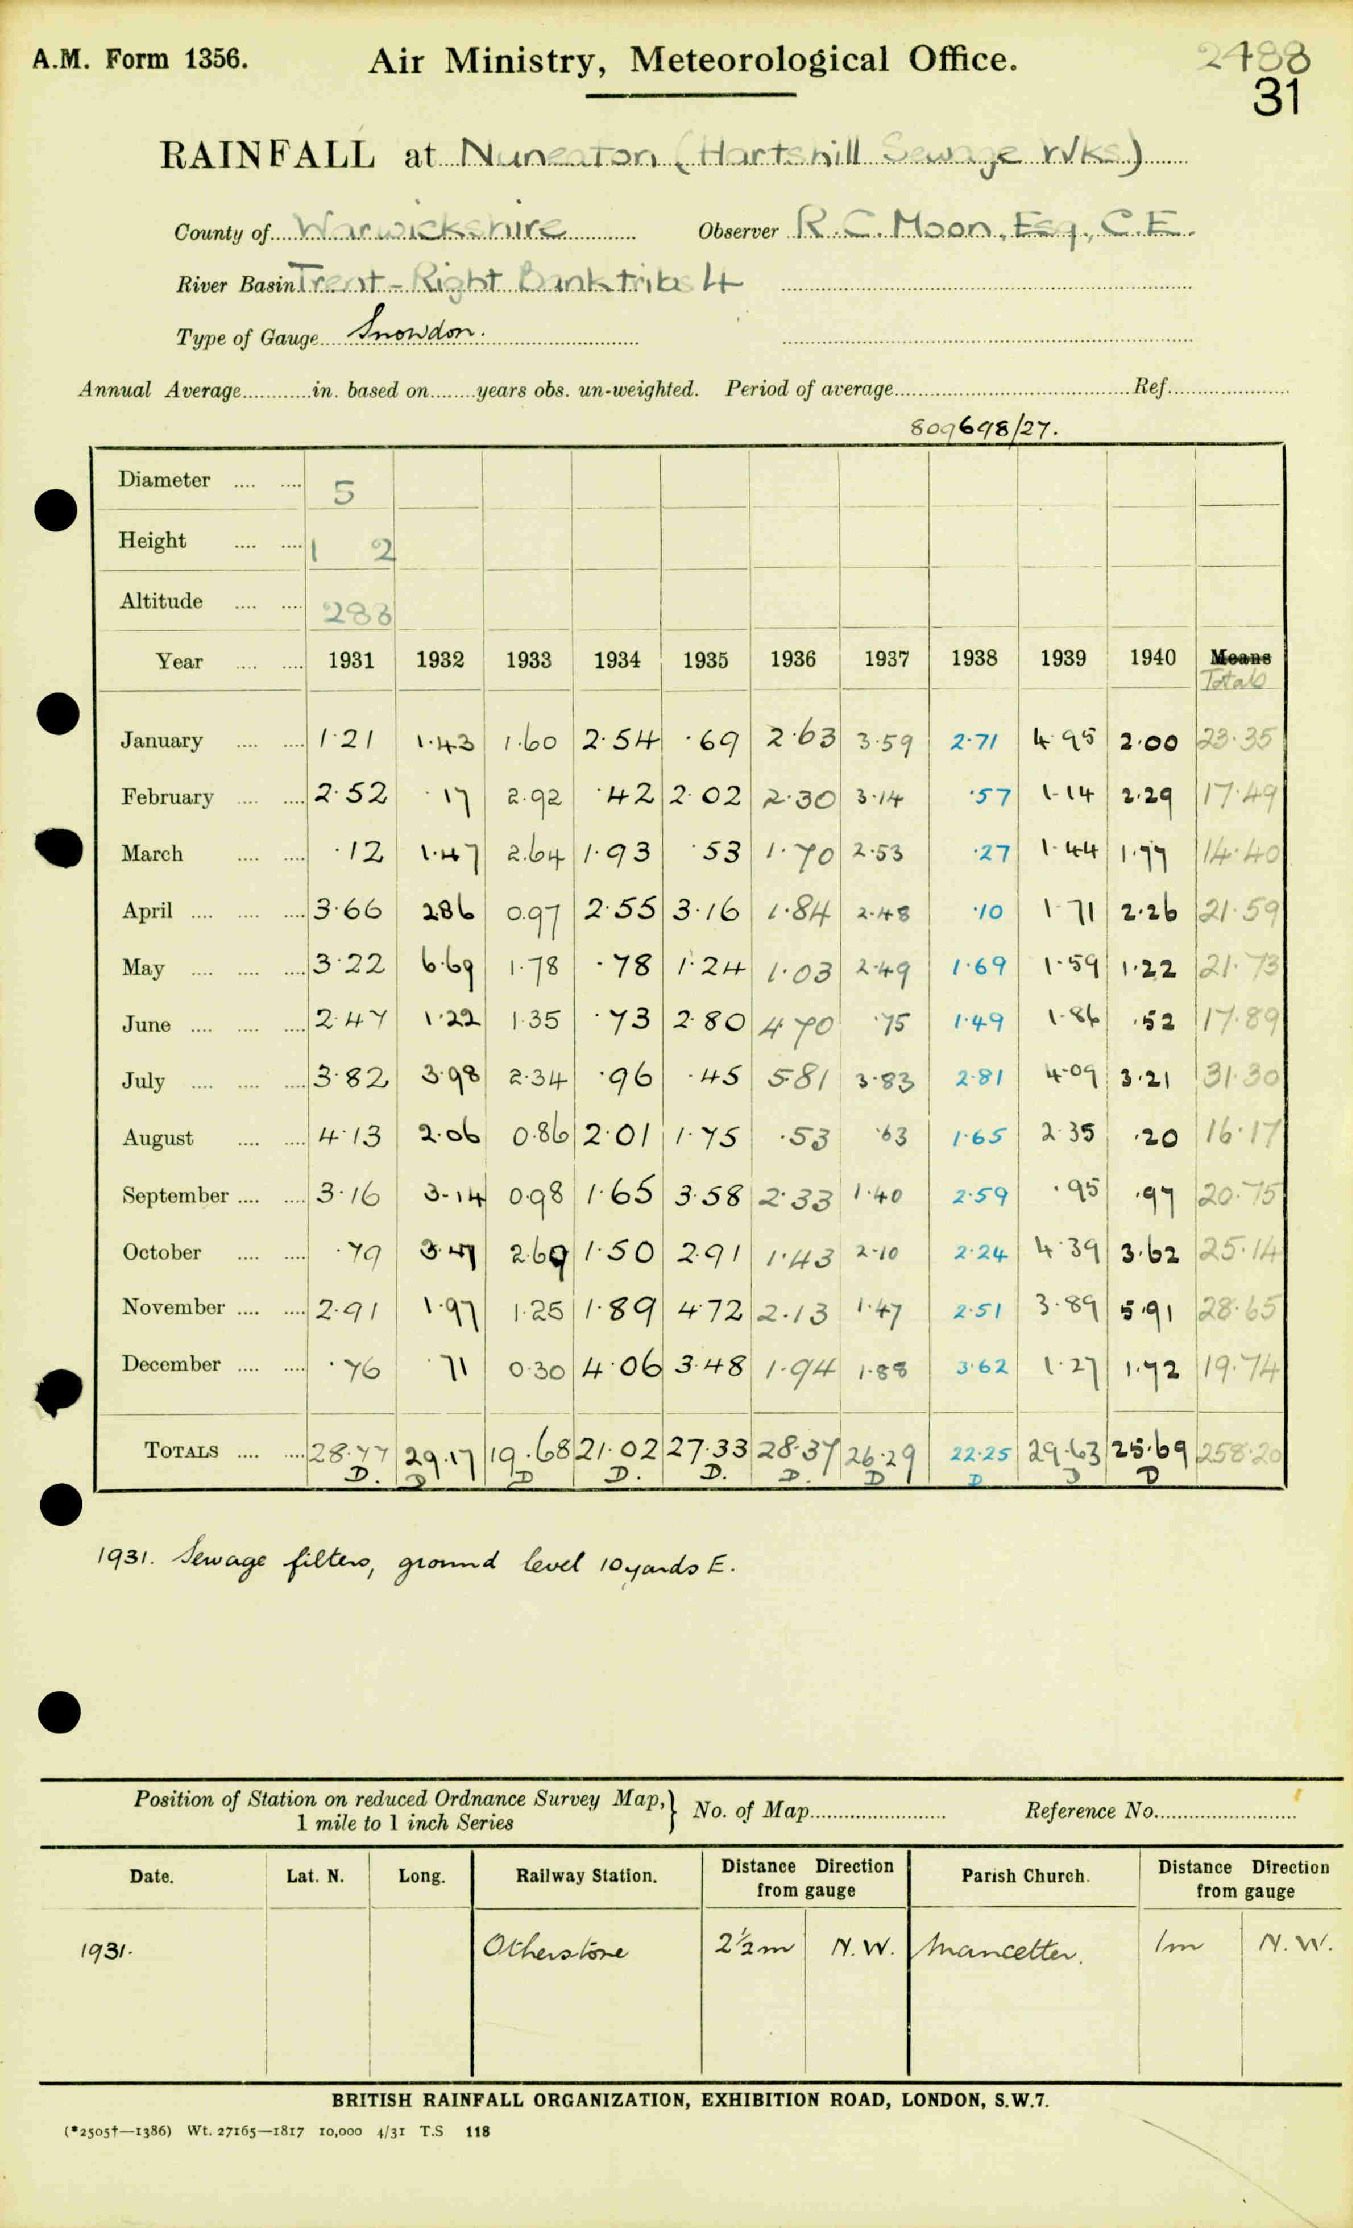 A.M. Form 1356. Air Ministry, Meteorological Office. 2488
31
RAINFALL at Nuneaton (Hartshill Sewage Wks)
County of Warwickshire Observer R.C. Moon, Esq., C.E.
River Basin Trent - Right Bank tribs 4
Type of Gauge Snowdon.
Annual Average in. based on years obs. un-weighted. Period of average Ref.
809698/27.
Diameter 5
Height 1 2
Altitude 288
Year 1931 1932 1933 1934 1935 1936 1937 1938 1939 1940 Means
Totals
January 1.21 1.43 1.60 2.54 .69 2.63 3.59 2.71 4.95 2.00 23.35
February 2.52 .17 2.92 .42 2.02 2.30 3.14 .57 1.14 2.29 17.49
March .12 1.47 2.64 1.93 .53 1.70 2.53 .27 1.44 1.77 14.40
April 3.66 2.86 0.97 2.55 3.16 1.84 2.48 .10 1.71 2.26 21.59
May 3.22 6.69 1.78 .78 1.24 1.03 2.49 1.69 1.59 1.22 21.73
June 2.47 1.22 1.35 .73 2.80 4.70 .75 1.49 1.86 .52 17.89
July 3.82 3.98 2.34 .96 .45 5.81 3.83 2.81 4.09 3.21 31.30
August 4.13 2.06 0.86 2.01 1.75 .53 .63 1.65 2.35 .20 16.17
September 3.16 3.14 0.98 1.65 3.58 2.33 1.40 2.59 .95 .97 20.75
October .79 3.47 2.69 1.50 2.91 1.43 2.10 2.24 4.39 3.62 25.14
November 2.91 1.97 1.25 1.89 4.72 2.13 1.47 2.51 3.89 5.91 28.65
December .76 .71 0.30 4.06 3.48 1.94 1.88 3.62 1.27 1.72 19.74
TOTALS 28.77 29.17 19.68 21.02 27.33 28.37 26.29 22.25 29.63 25.69 258.20
D. D D D. D. D. D D D D
1931. Sewage filters, ground level 10 yards E.
Position of Station on reduced Ordnance Survey Map, No. of Map Reference No.
1 mile to 1 inch Series
Date. Lat. N. Long. Railway Station. Distance Direction Parish Church. Distance Direction
from gauge from gauge
1931. Otherstone 2½m N.W. Mancetter. 1m N.W.
BRITISH RAINFALL ORGANIZATION, EXHIBITION ROAD, LONDON, S.W.7.
(*2505†—1386) Wt. 27165—1817 10,000 4/31 T.S 118